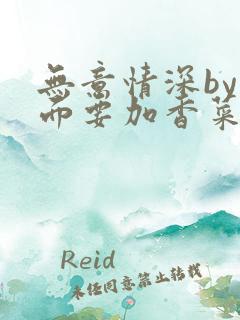 無意情深by
而要加香菜
Reid
未任同意禁止转载